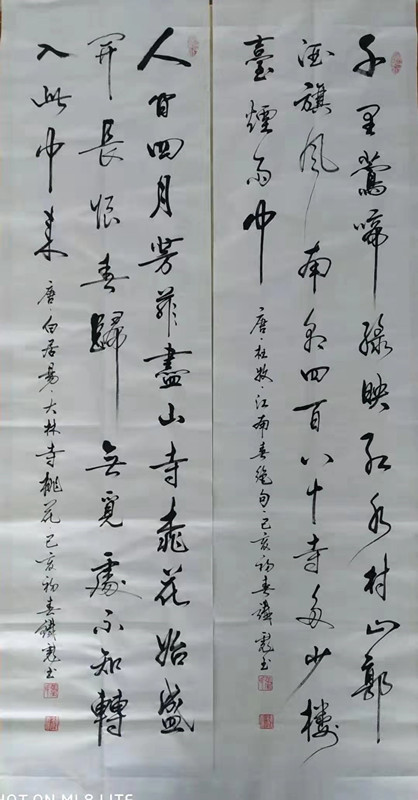 千里鶯啼綠映紅水村山郭
酒旗風南朝四百八十寺多少樓
臺煙雨中
唐·杜牧·江南春绝句·己亥初春书
人間四月芳菲盡山寺桃花始盛
開長恨春歸無覓處不知轉
入此中来
唐·白居易·大林寺桃花己亥初春书
HOT ON MI 8 LITE